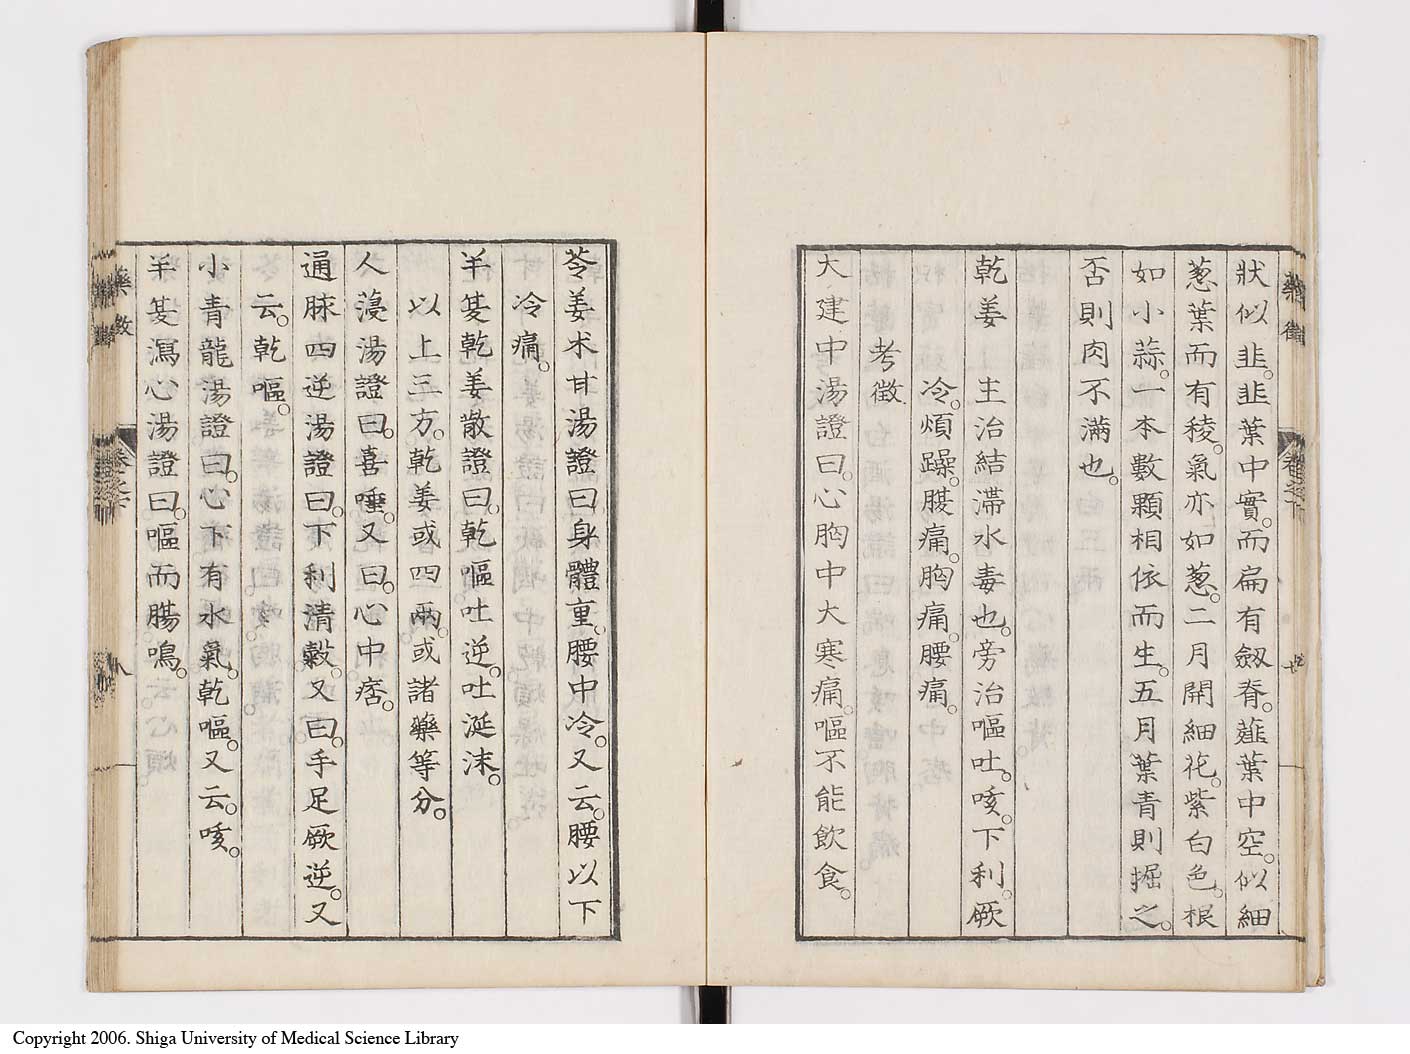 狀似韭。韭葉中實。而扁有劔脊。薤葉中空。似細
葱葉而有稜。氣亦如葱。二月開細花。紫白色。根
如小蒜。一本數顆相依而生。五月葉青則掘之。
否則肉不滿也。
乾姜 主治結滯水毒也。旁治嘔吐。咳。下利。厥
冷。煩躁。腹痛。胸痛。腰痛。
考徵
大建中湯證曰。心胸中大寒痛。嘔不能飲食。
苓姜朮甘湯證曰。身體重。腰中冷。又云。腰以下
冷痛。
半夏乾姜散證曰。乾嘔吐逆。吐涎沫。
以上三方。乾姜或四兩。或諸藥等分。
人薓湯證曰。喜唾。又曰。心中痞。
通脉四逆湯證曰。下利清穀。又曰。手足厥逆。又
云。乾嘔。
小青龍湯證曰。心下有水氣。乾嘔。又云。咳。
半夏瀉心湯證曰。嘔而腸鳴。
藥徵
卷之下
卷之下
八
Copyright 2006. Shiga University of Medical Science Library